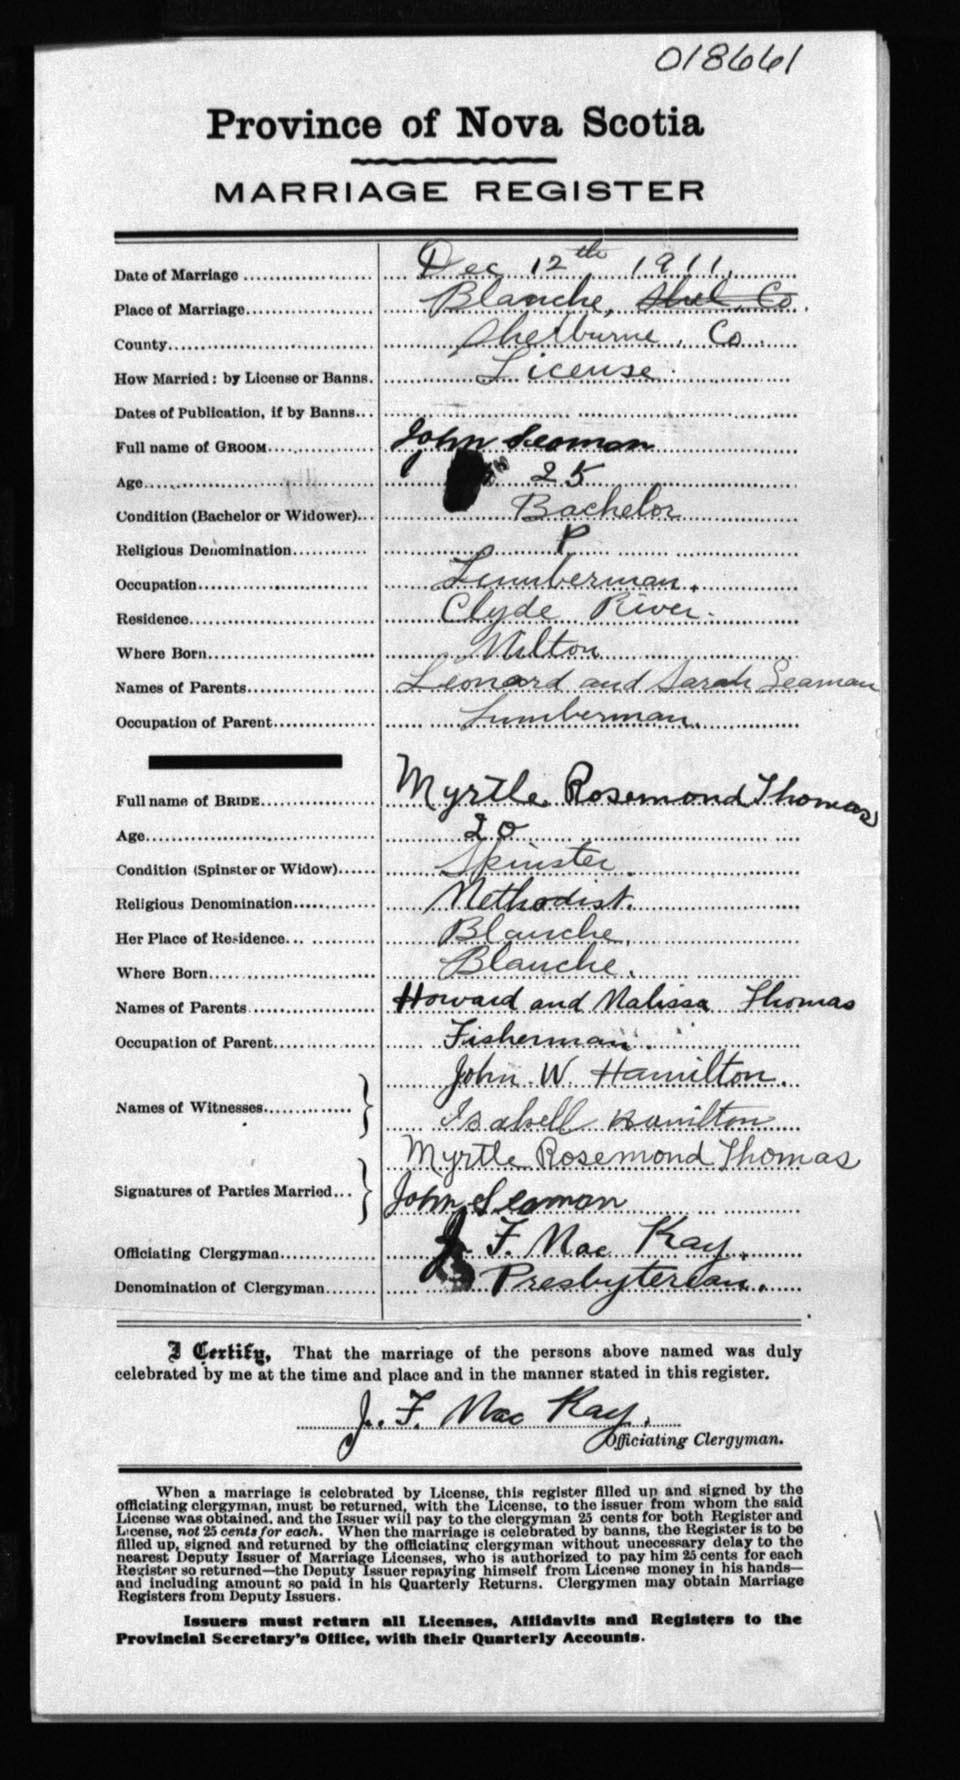 018661
Province of Nova Scotia
MARRIAGE REGISTER
Date of Marriage Dec 12th 1911.
Place of Marriage Blanche, Shel. Co.
County Shelburne. Co.
How Married: by License or Banns. License.
Dates of Publication, if by Banns
Full name of GROOM John Seaman
Age 25
Condition (Bachelor or Widower) Bachelor
Religious Denomination P
Occupation Lumberman.
Residence Clyde River.
Where Born Milton
Names of Parents Leonard and Sarah Seaman
Occupation of Parent Lumberman.
Full name of BRIDE Myrtle Rosemond Thomas
Age 20
Condition (Spinster or Widow) Spinster.
Religious Denomination Methodist.
Her Place of Residence Blanche.
Where Born Blanche.
Names of Parents Howard and Malissa Thomas
Occupation of Parent Fisherman.
John W. Hamilton.
Names of Witnesses
Isabell Hamilton
Myrtle Rosemond Thomas
Signatures of Parties Married
John Seaman
Officiating Clergyman J. F. Mac Kay.
Denomination of Clergyman Presbyterian.
I Certify, That the marriage of the persons above named was duly
celebrated by me at the time and place and in the manner stated in this register.
J. F. Mac Kay.
Officiating Clergyman.
When a marriage is celebrated by License, this register filled up and signed by the
officiating clergyman, must be returned, with the License, to the issuer from whom the said
License was obtained, and the Issuer will pay to the clergyman 25 cents for both Register and
License, not 25 cents for each. When the marriage is celebrated by banns, the Register is to be
filled up, signed and returned by the officiating clergyman without unecessary delay to the
nearest Deputy Issuer of Marriage Licenses, who is authorized to pay him 25 cents for each
Register so returned—the Deputy Issuer repaying himself from License money in his hands—
and including amount so paid in his Quarterly Returns. Clergymen may obtain Marriage
Registers from Deputy Issuers.
Issuers must return all Licenses, Affidavits and Registers to the
Provincial Secretary's Office, with their Quarterly Accounts.